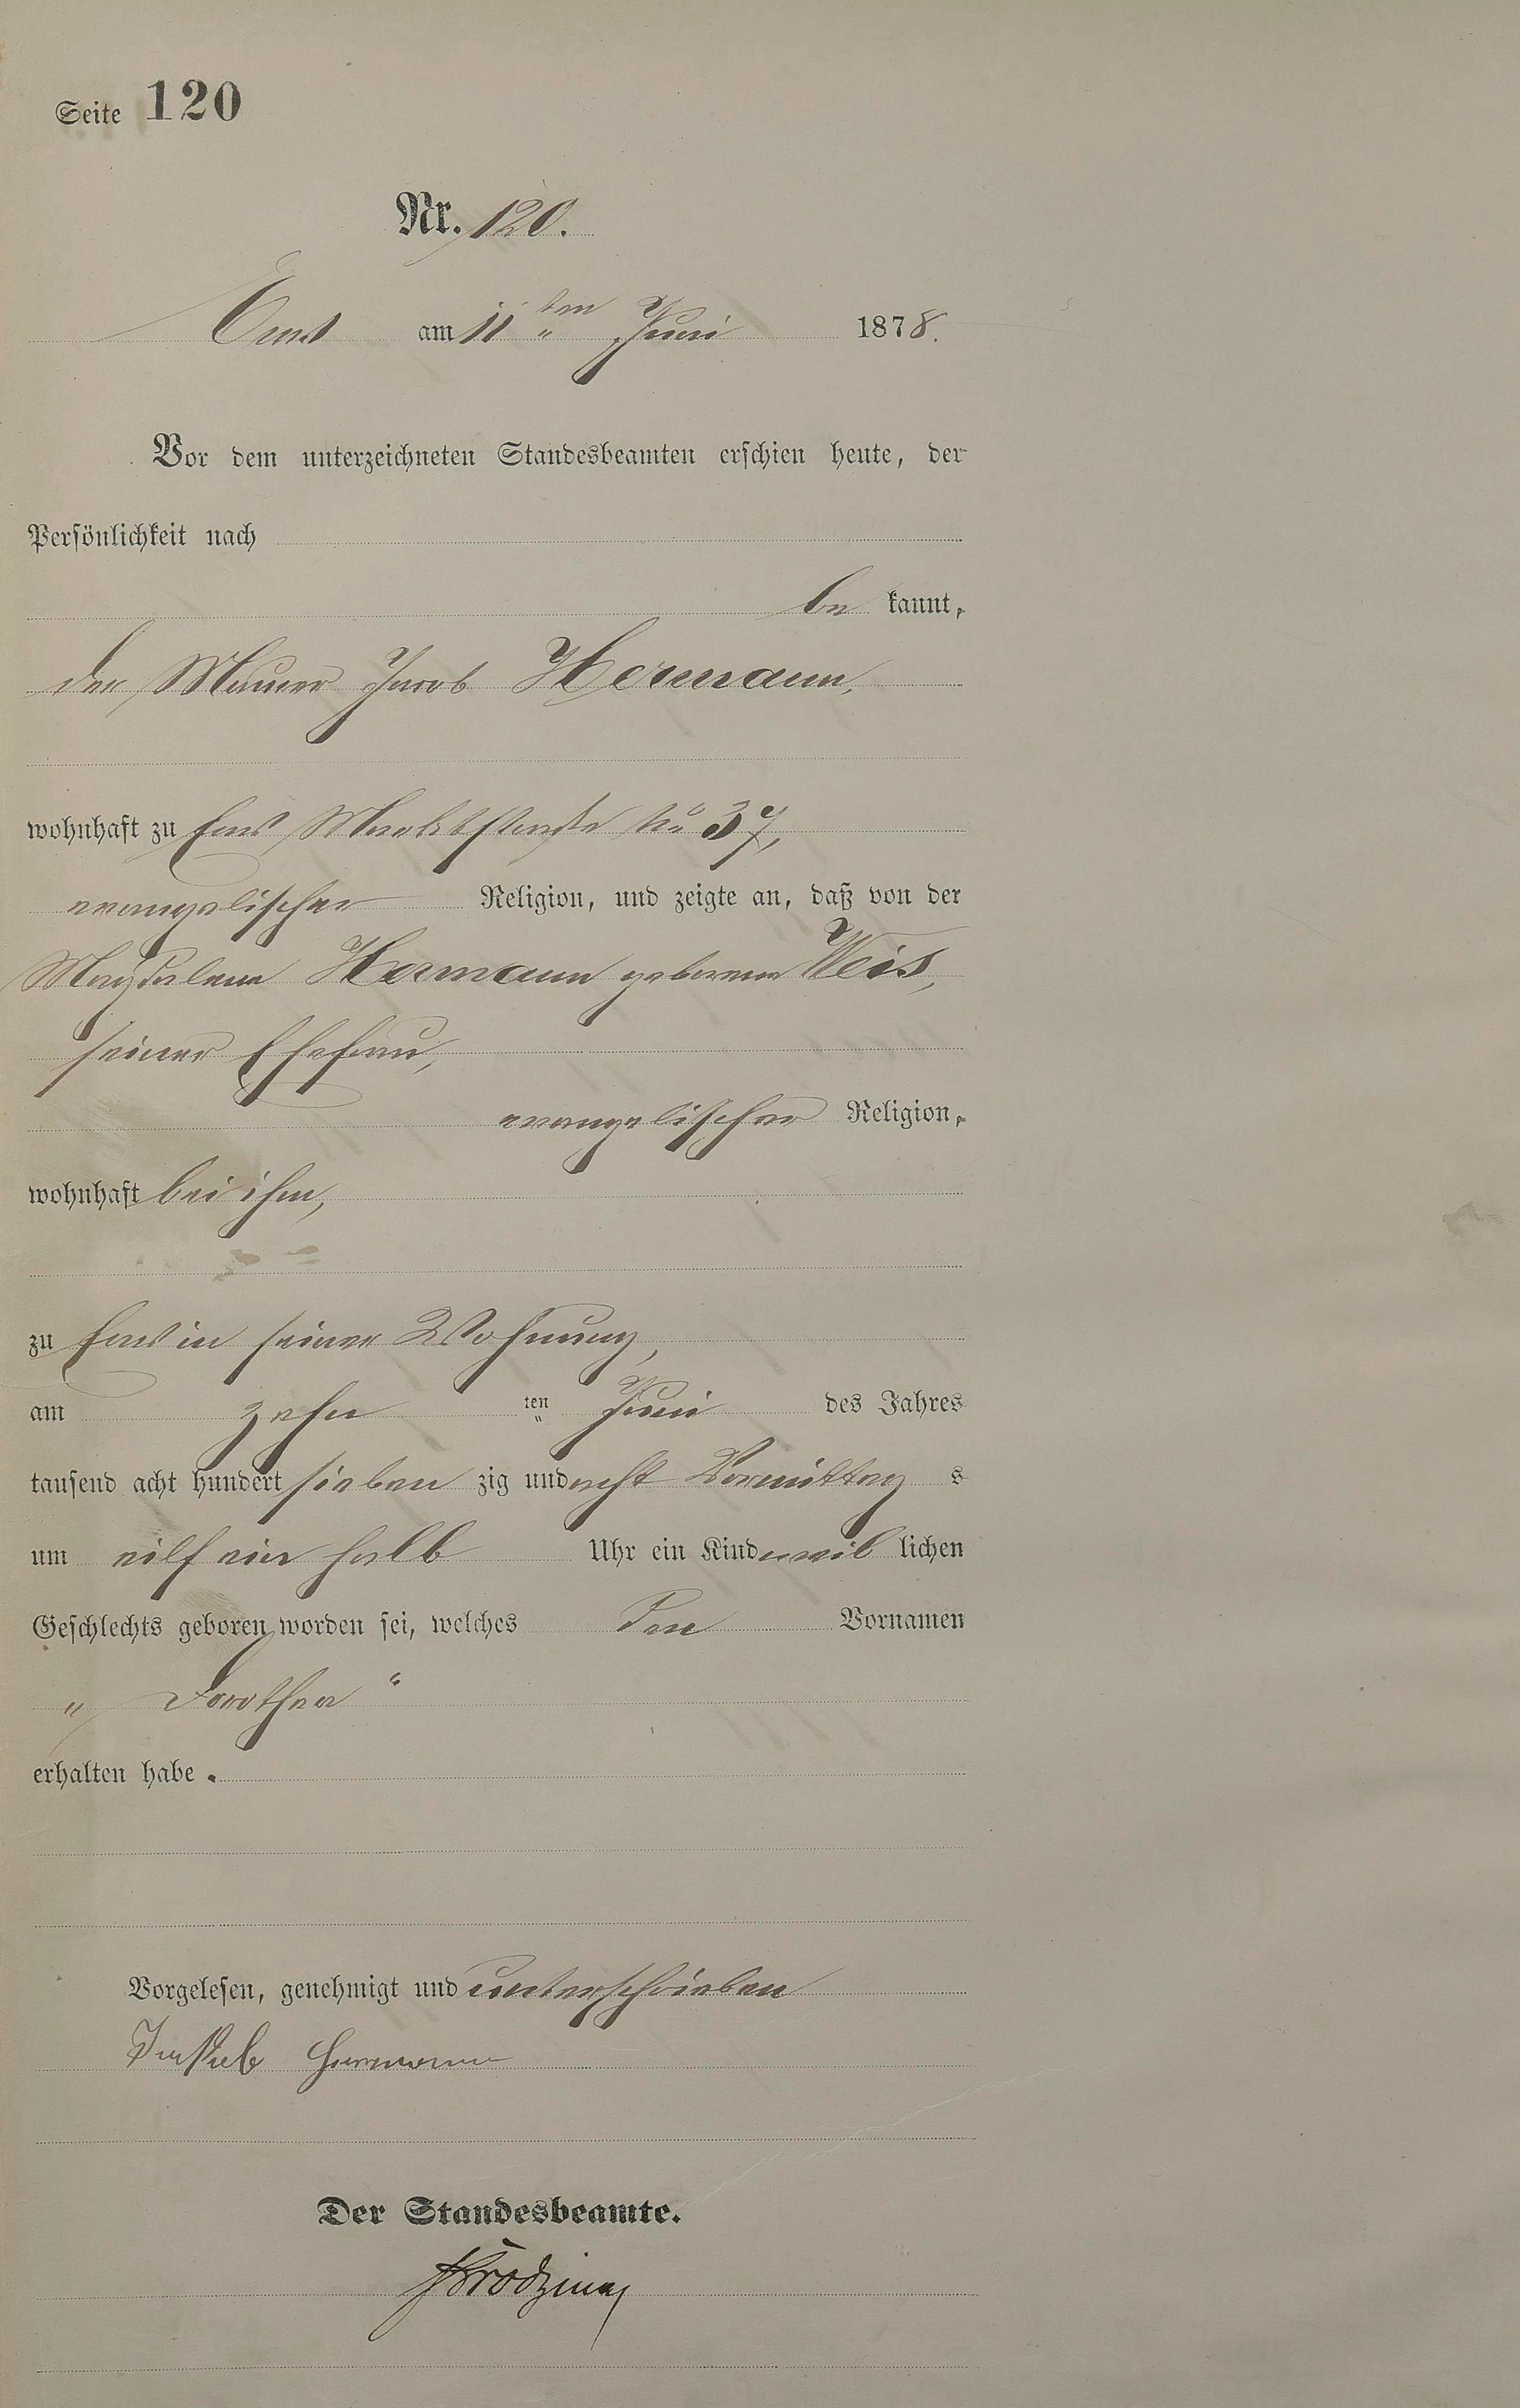 Seite 120
Nr. 120.
Ems am 11 ten Juni 1878.
Vor dem unterzeichneten Standesbeamten erschien heute, der
Persönlichkeit nach
be kannt,
der Maurer Jacob Hermann,
wohnhaft zu Ems Marktstraße No 37,
evangelischer Religion, und zeigte an, daß von der
Magdalena Hermann geborene Weis,
seiner Ehefrau,
evangelischer Religion,
wohnhaft bei ihm,
zu Ems in seiner Wohnung,
am zehn ten Juni des Jahres
tausend acht hundert sieben zig und acht Vormittag s
um eilf ein halb Uhr ein Kind weib lichen
Geschlechts geboren worden sei, welches den Vornamen
" Dorothea "
erhalten habe.
Vorgelesen, genehmigt und unterschrieben
Jakob Hermann
Der Standesbeamte.